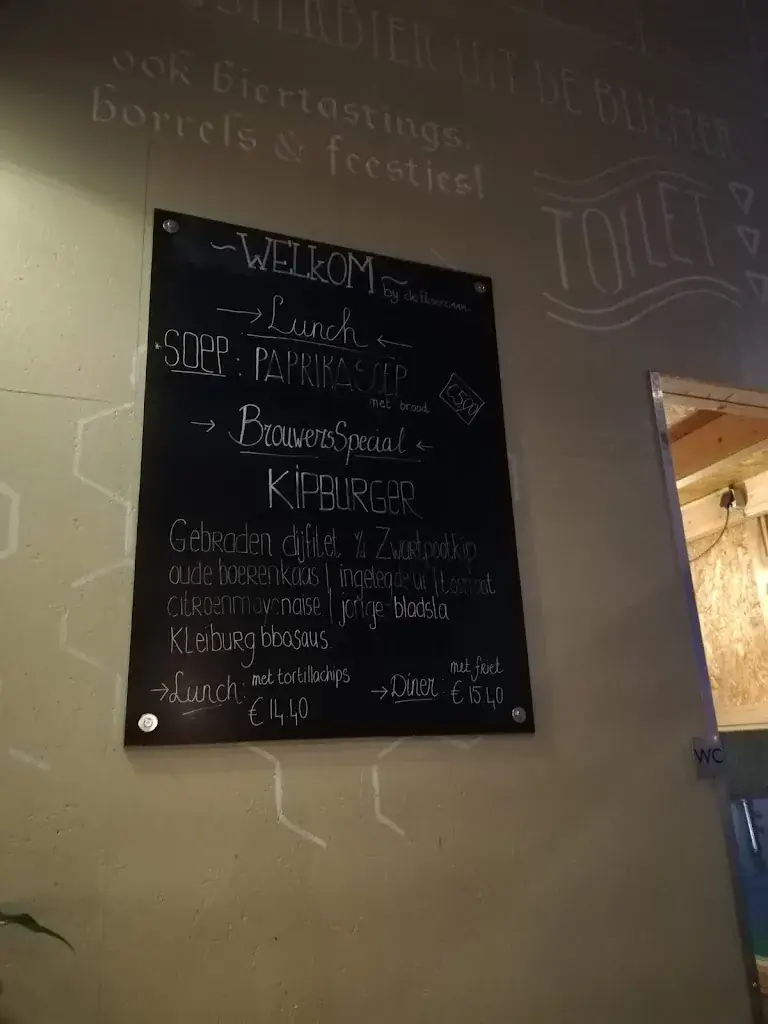 UIT DE BIJLMER
ook biertastings,
borrels & feestjes!
TOILET
~WELKOM~
by
→ Lunch ←
*SOEP: PAPRIKASOEP
met brood
€5,00
→ BrouwersSpecial ←
KIPBURGER
Gebraden dijfilet v. Zwartpootkip
oude boerenkaas | ingelegde ui | tomaat
citroenmayonaise | jonge bladsla
Kleiburg bbqsaus
→ Lunch: met tortillachips
€ 14.40
→ Diner: met friet
€ 15.40
WC